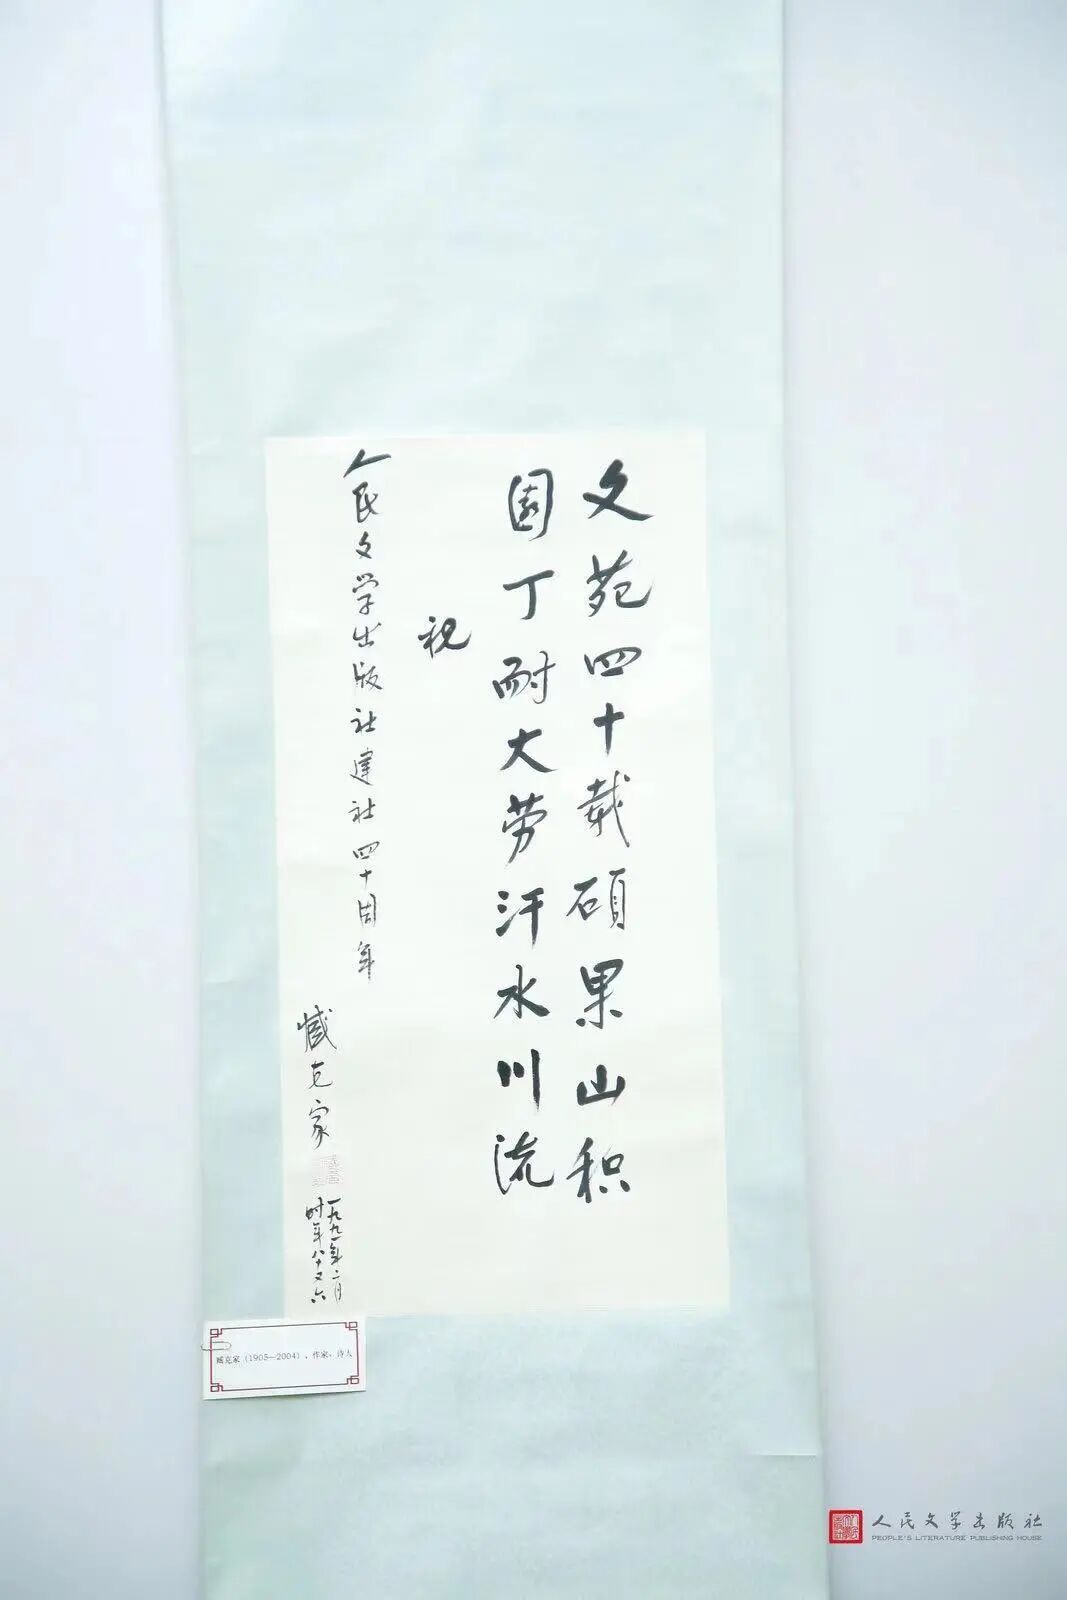 文苑四十载硕果山积
园丁耐大劳汗水川流
祝
人民文学出版社建社四十周年
臧克家
一九九一年二月
时年八十又六
臧克家（1905—2004），作家、诗人
人民文学出版社
PEOPLE'S LITERATURE PUBLISHING HOUSE